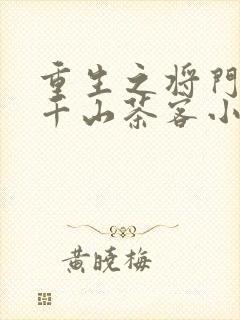 重生之将门
千山茶客小
黄晓梅